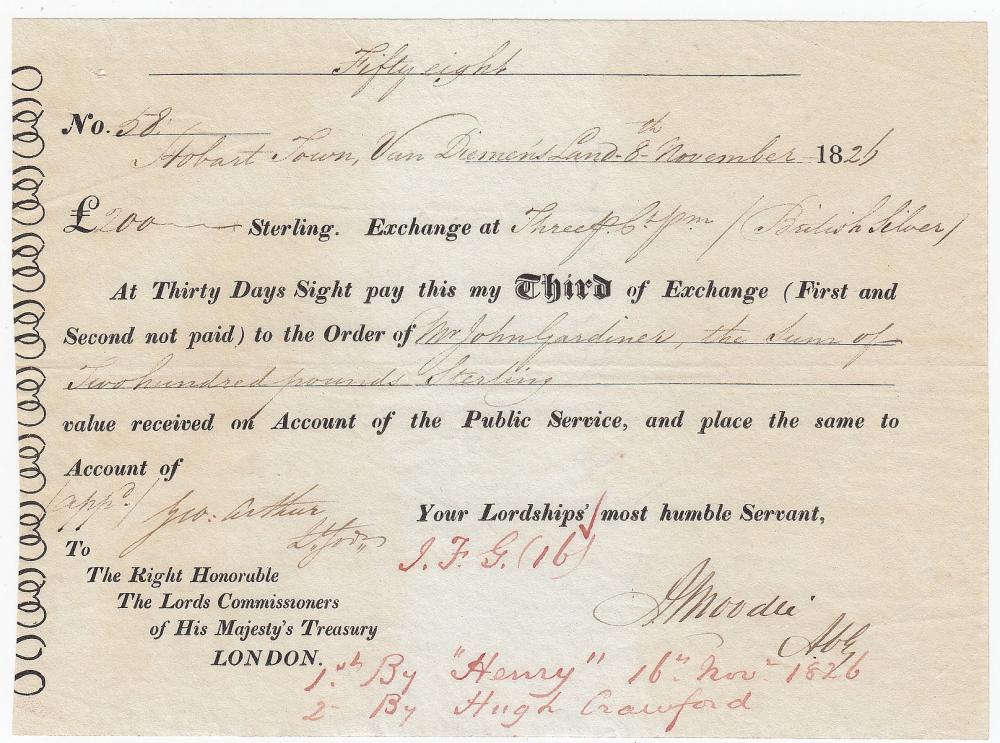 Fifty eight
No. 58.
Hobart Town, Van Diemen's Land 8th November 1826
£200 Sterling. Exchange at Three p. Ct. pm / (British Silver)
At Thirty Days Sight pay this my Third of Exchange (First and
Second not paid) to the Order of Mr John Gardiner, the Sum of
Two hundred pounds Sterling
value received on Account of the Public Service, and place the same to
Account of
(appd.) Geo: Arthur
Lt. Govr.
Your Lordships' most humble Servant,
To
The Right Honorable
The Lords Commissioners
of His Majesty's Treasury
LONDON.
J. F. G. (16)
A Moodie
ACG
1st By "Henry" 16th Novr 1826
2 - By Hugh Crawford